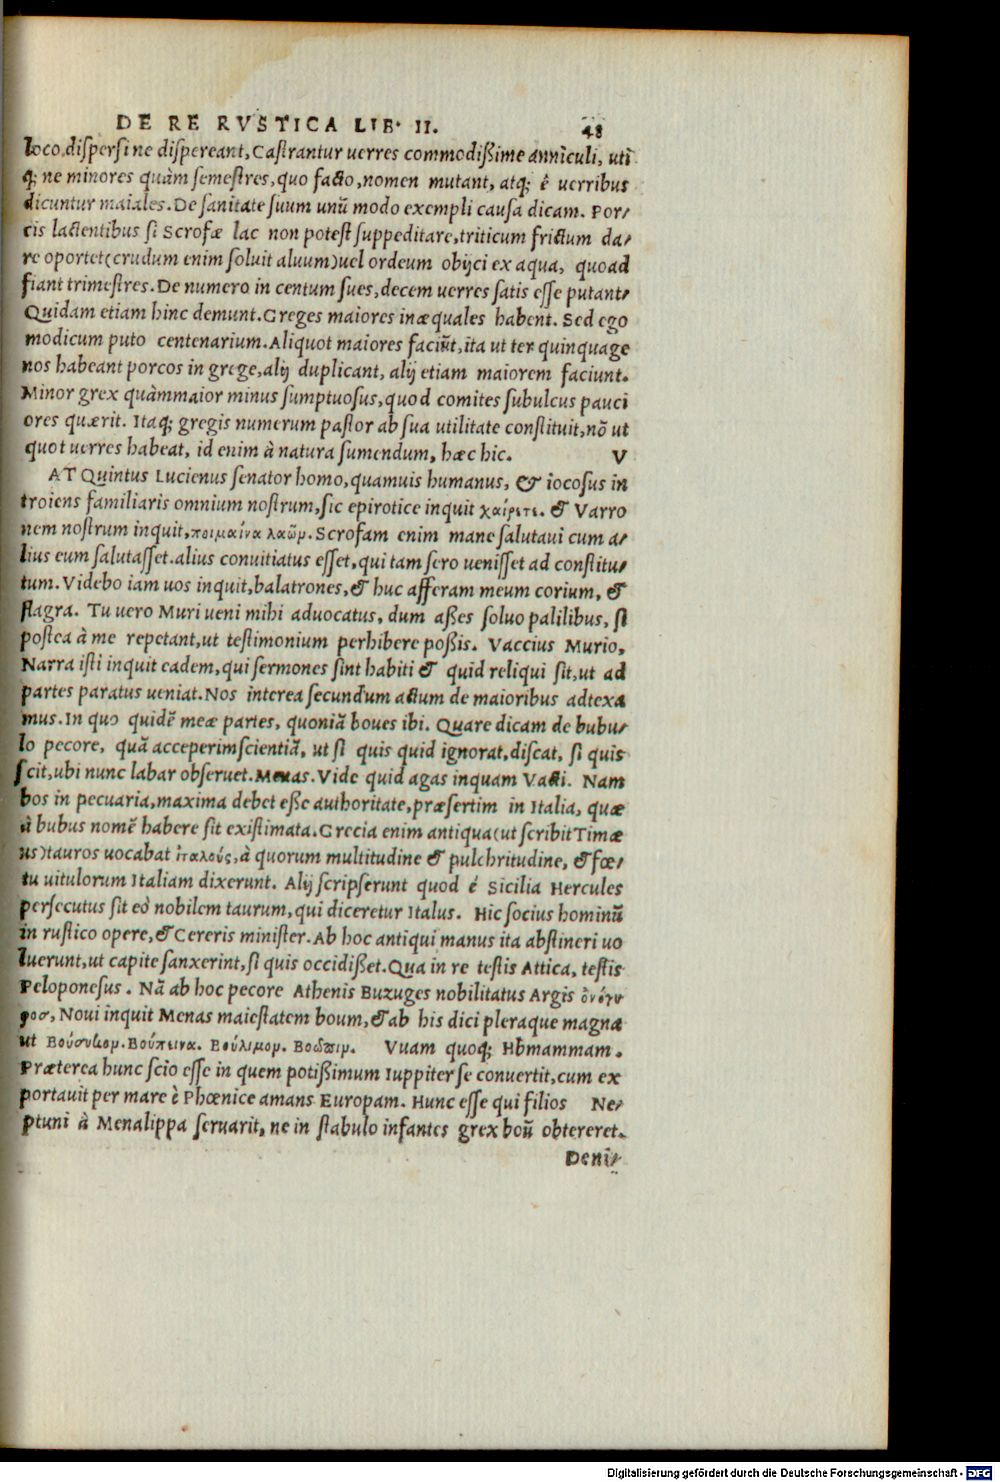 DE RE RVSTICA LIB. II. 48
loco, disperſi ne diſpereant, Caſtrantur uerres commodißime anniculi, uti
q; ne minores quàm ſemeſtres, quo facto, nomen mutant, atq; è uerribus
dicuntur maiales. De ſanitate ſuum unũ modo exempli cauſa dicam. Por/
cis lactentibus ſi Scrofæ lac non poteſt ſuppeditare, triticum frictum da/
re oportet (crudum enim ſoluit aluum) uel ordeum obijci ex aqua, quoad
fiant trimeſtres. De numero in centum ſues, decem uerres ſatis eſſe putant/
Quidam etiam hinc demunt. Greges maiores inæquales habent. Sed ego
modicum puto centenarium. Aliquot maiores faciũt, ita ut ter quinquage
nos habeant porcos in grege, alij duplicant, alij etiam maiorem faciunt.
Minor grex quàmmaior minus ſumptuoſus, quod comites ſubulcus pauci
ores quærit. Itaq; gregis numerum paſtor ab ſua utilitate conſtituit, nõ ut
quot uerres habeat, id enim à natura ſumendum, hæc hic. V
AT Quintus Lucienus ſenator homo, quamuis humanus, & iocoſus in
troiens familiaris omnium noſtrum, ſic epirotice inquit χαίρετε. & Varro
nem noſtrum inquit, ποιμαίνα λαῶμ. Scrofam enim mane ſalutaui cum a/
lius eum ſalutaſſet. alius conuitiatus eſſet, qui tam ſero ueniſſet ad conſtitu/
tum. Videbo iam uos inquit, balatrones, & huc afferam meum corium, &
flagra. Tu uero Muri ueni mihi aduocatus, dum aßes ſoluo palilibus, ſi
poſtea à me repetant, ut teſtimonium perhibere poßis. Vaccius Murio,
Narra iſti inquit eadem, qui ſermones ſint habiti & quid reliqui ſit, ut ad
partes paratus ueniat. Nos interea ſecundum actum de maioribus adtexa
mus. In quo quidẽ meæ partes, quoniã boues ibi. Quare dicam de bubu/
lo pecore, quã acceperimſcientiã, ut ſi quis quid ignorat, diſcat, ſi quis
ſcit, ubi nunc labar obſeruet. Menas. Vide quid agas inquam Vacti. Nam
bos in pecuaria, maxima debet eße authoritate, præſertim in Italia, quæ
à bubus nomẽ habere ſit exiſtimata. Grecia enim antiqua (ut ſcribit Timæ
us) tauros uocabat ἰταλούς, à quorum multitudine & pulchritudine, & fœ/
tu uitulorum Italiam dixerunt. Alij ſcripſerunt quod è Sicilia Hercules
perſecutus ſit eò nobilem taurum, qui diceretur Italus. Hic ſocius hominũ
in ruſtico opere, & Cereris miniſter. Ab hoc antiqui manus ita abſtineri uo
luerunt, ut capite ſanxerint, ſi quis occidißet. Qua in re teſtis Attica, teſtis
Peloponeſus. Nã ab hoc pecore Athenis Buzuges nobilitatus Argis
Noui inquit Menas maieſtatem boum, & ab his dici pleraque magna
ut Βούσυκομ. Βούπεινα. Βούλιμομ. Βοῶπιμ. Vuam quoq; Hbmammam.
Præterea hunc ſcio eſſe in quem potißimum Iuppiter ſe conuertit, cum ex
portauit per mare è Phœnice amans Europam. Hunc eſſe qui filios Ne/
ptuni à Menalippa ſeruarit, ne in ſtabulo infantes grex boũ obtereret.
Deni/
Digitalisierung gefördert durch die Deutsche Forschungsgemeinschaft - DFG